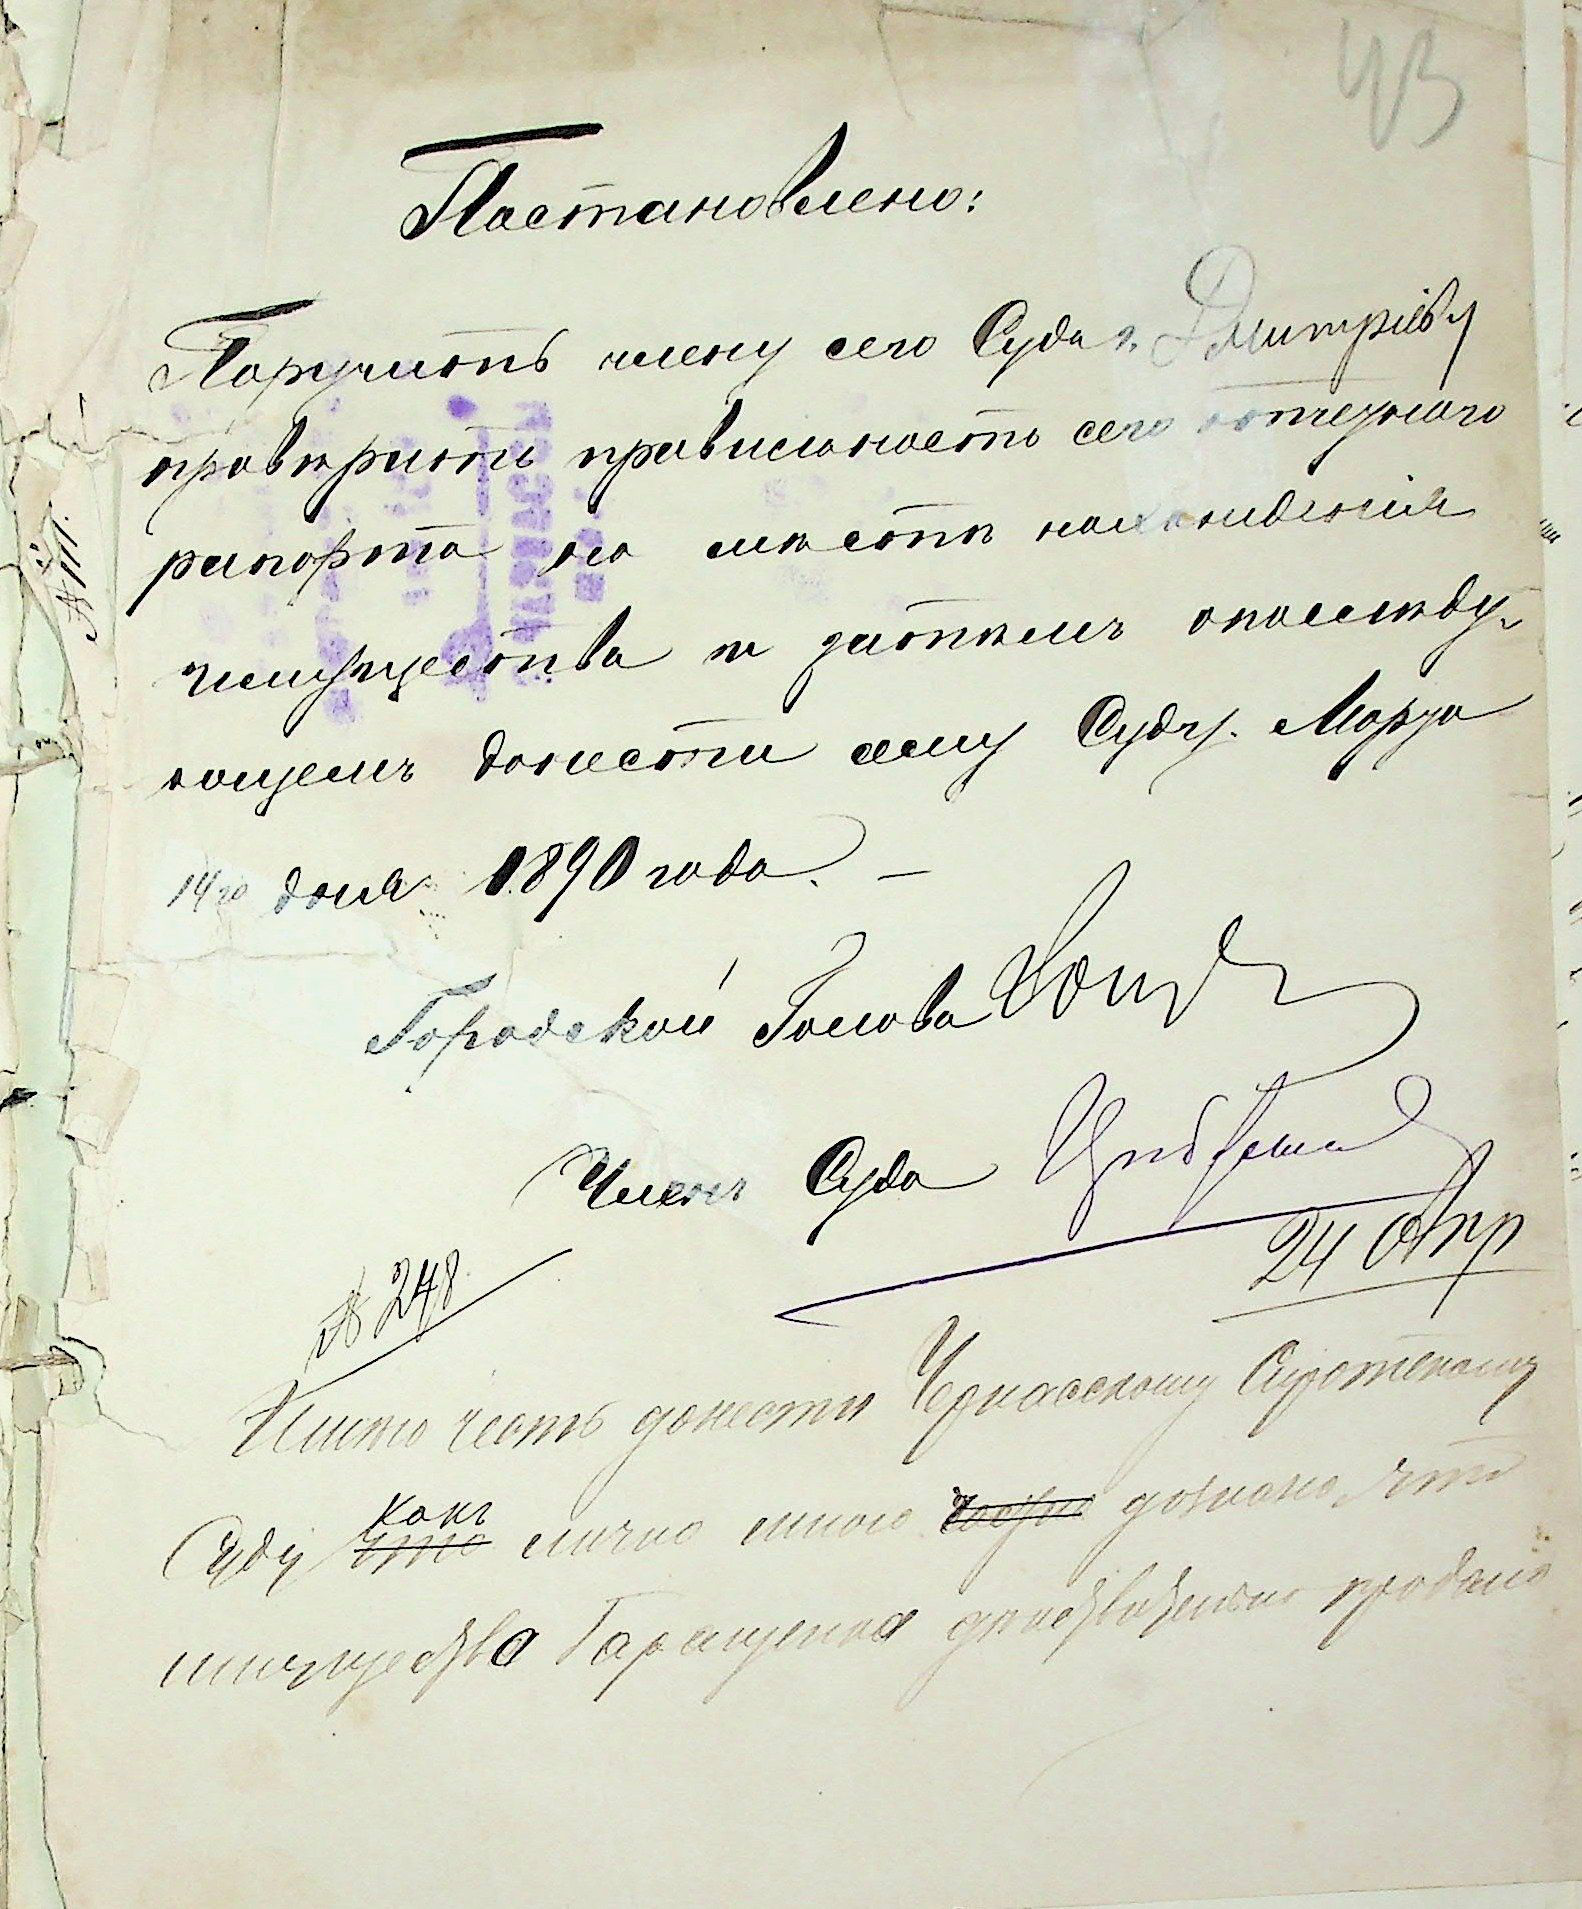 43
Постановлено:
Поручить члену сего Суда г. Дмитріеву
провѣрить правильность сего отчетнаго
рапорта на мѣстѣ нахожденія
имущества и затѣмъ опослѣду-
ющемъ донести сему Суду. Марта
14го дня 1890 года. —
Городской Голова
Членъ Суда
24 Апр
№ 248
Имѣю честь донести Черкасскому Сиротскому
Суду какъ лично мною дознано, что
имущества Гаращенка дѣйствительно продано